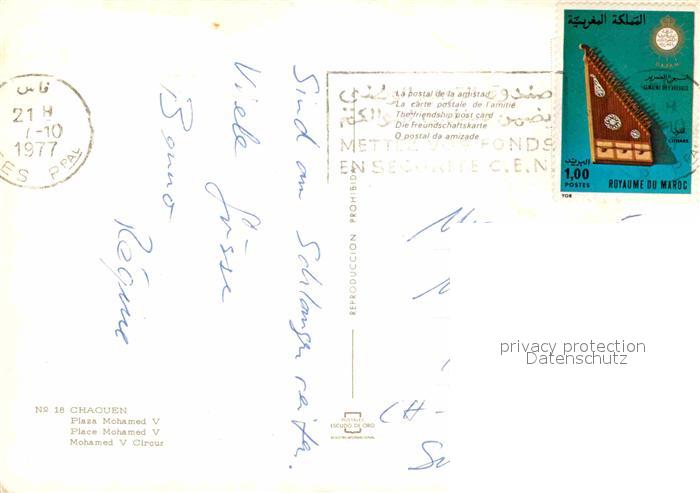 فاس
21 H
7-10
1977
ES PPAL
Sind am Schlangenreiten.
Viele Grüsse
Benno
Régine
Nº 18 CHAOUEN
Plaza Mohamed V
Place Mohamed V
Mohamed V Circur
REPRODUCCION PROHIBIDA
POSTALES
ESCUDO DE ORO
REGISTRO INTERNACIONAL
La postal de la amistad
La carte postale de l'amitié
The friendship post card
Die Freundschaftskarte
O postal da amizade
METTEZ FONDS
EN SECURITE C.E.N
المملكة المغربية
SEMAINE DES AVEUGLES
CITHARE
البريد
1,00
POSTES
ROYAUME DU MAROC
CH-
privacy protection
Datenschutz